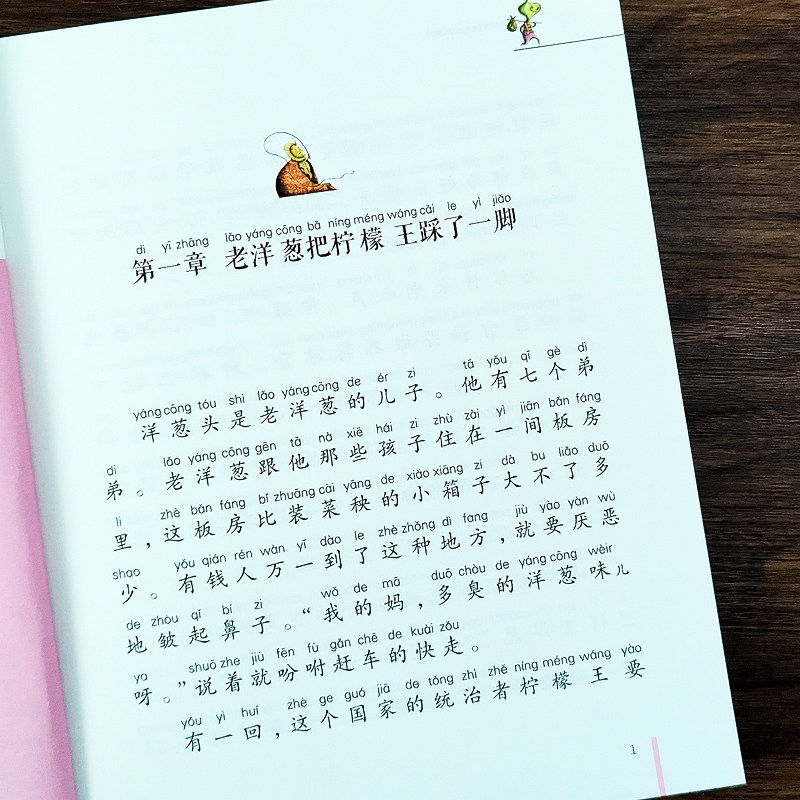 dì yī zhāng lǎo yáng cōng bǎ níng méng wáng cǎi le yì jiǎo
第一章 老洋葱把柠檬王踩了一脚
yáng cōng tóu shì lǎo yáng cōng de ér zi tā yǒu qī gè dì
洋葱头是老洋葱的儿子。他有七个弟
di lǎo yáng cōng gēn tā nà xiē hái zi zhù zài yì jiān bǎn fáng
弟。老洋葱跟他那些孩子住在一间板房
li zhè bǎn fáng bǐ zhuāng cài yāng de xiǎo xiāng zi dà bu liǎo duō
里，这板房比装菜秧的小箱子大不了多
shao yǒu qián rén wàn yī dào le zhè zhǒng dì fang jiù yào yàn wù
少。有钱人万一到了这种地方，就要厌恶
de zhòu qǐ bí zi wǒ de mā duō chòu de yáng cōng wèir
地皱起鼻子。“我的妈，多臭的洋葱味儿
ya shuō zhe jiù fēn fù gǎn chē de kuài zǒu
呀。”说着就吩咐赶车的快走。
yǒu yì huí zhè ge guó jiā de tǒng zhì zhě níng méng wáng yào
有一回，这个国家的统治者柠檬王要
1